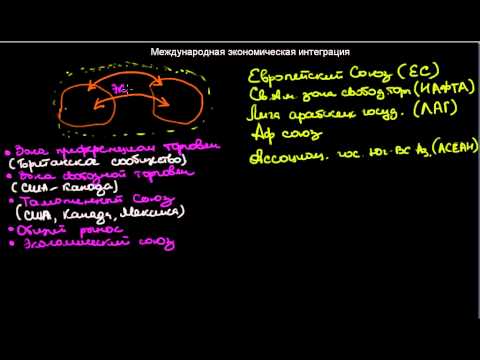 Международная экономическая интеграция
Эк
Европейский Союз (ЕС)
Св.Ам. зона свобод торг (НАФТА)
Лига арабских госуд. (ЛАГ)
Аф союз
Ассоциац. гос. Юг-Вс Аз. (АСЕАН)
• Зона преференциал торговли
(Британское сообщество)
• Зона свободной торговли
(США - Канада)
• Таможенный Союз
(США, Канада, Мексика)
• Общий рынок
• Экономический союз